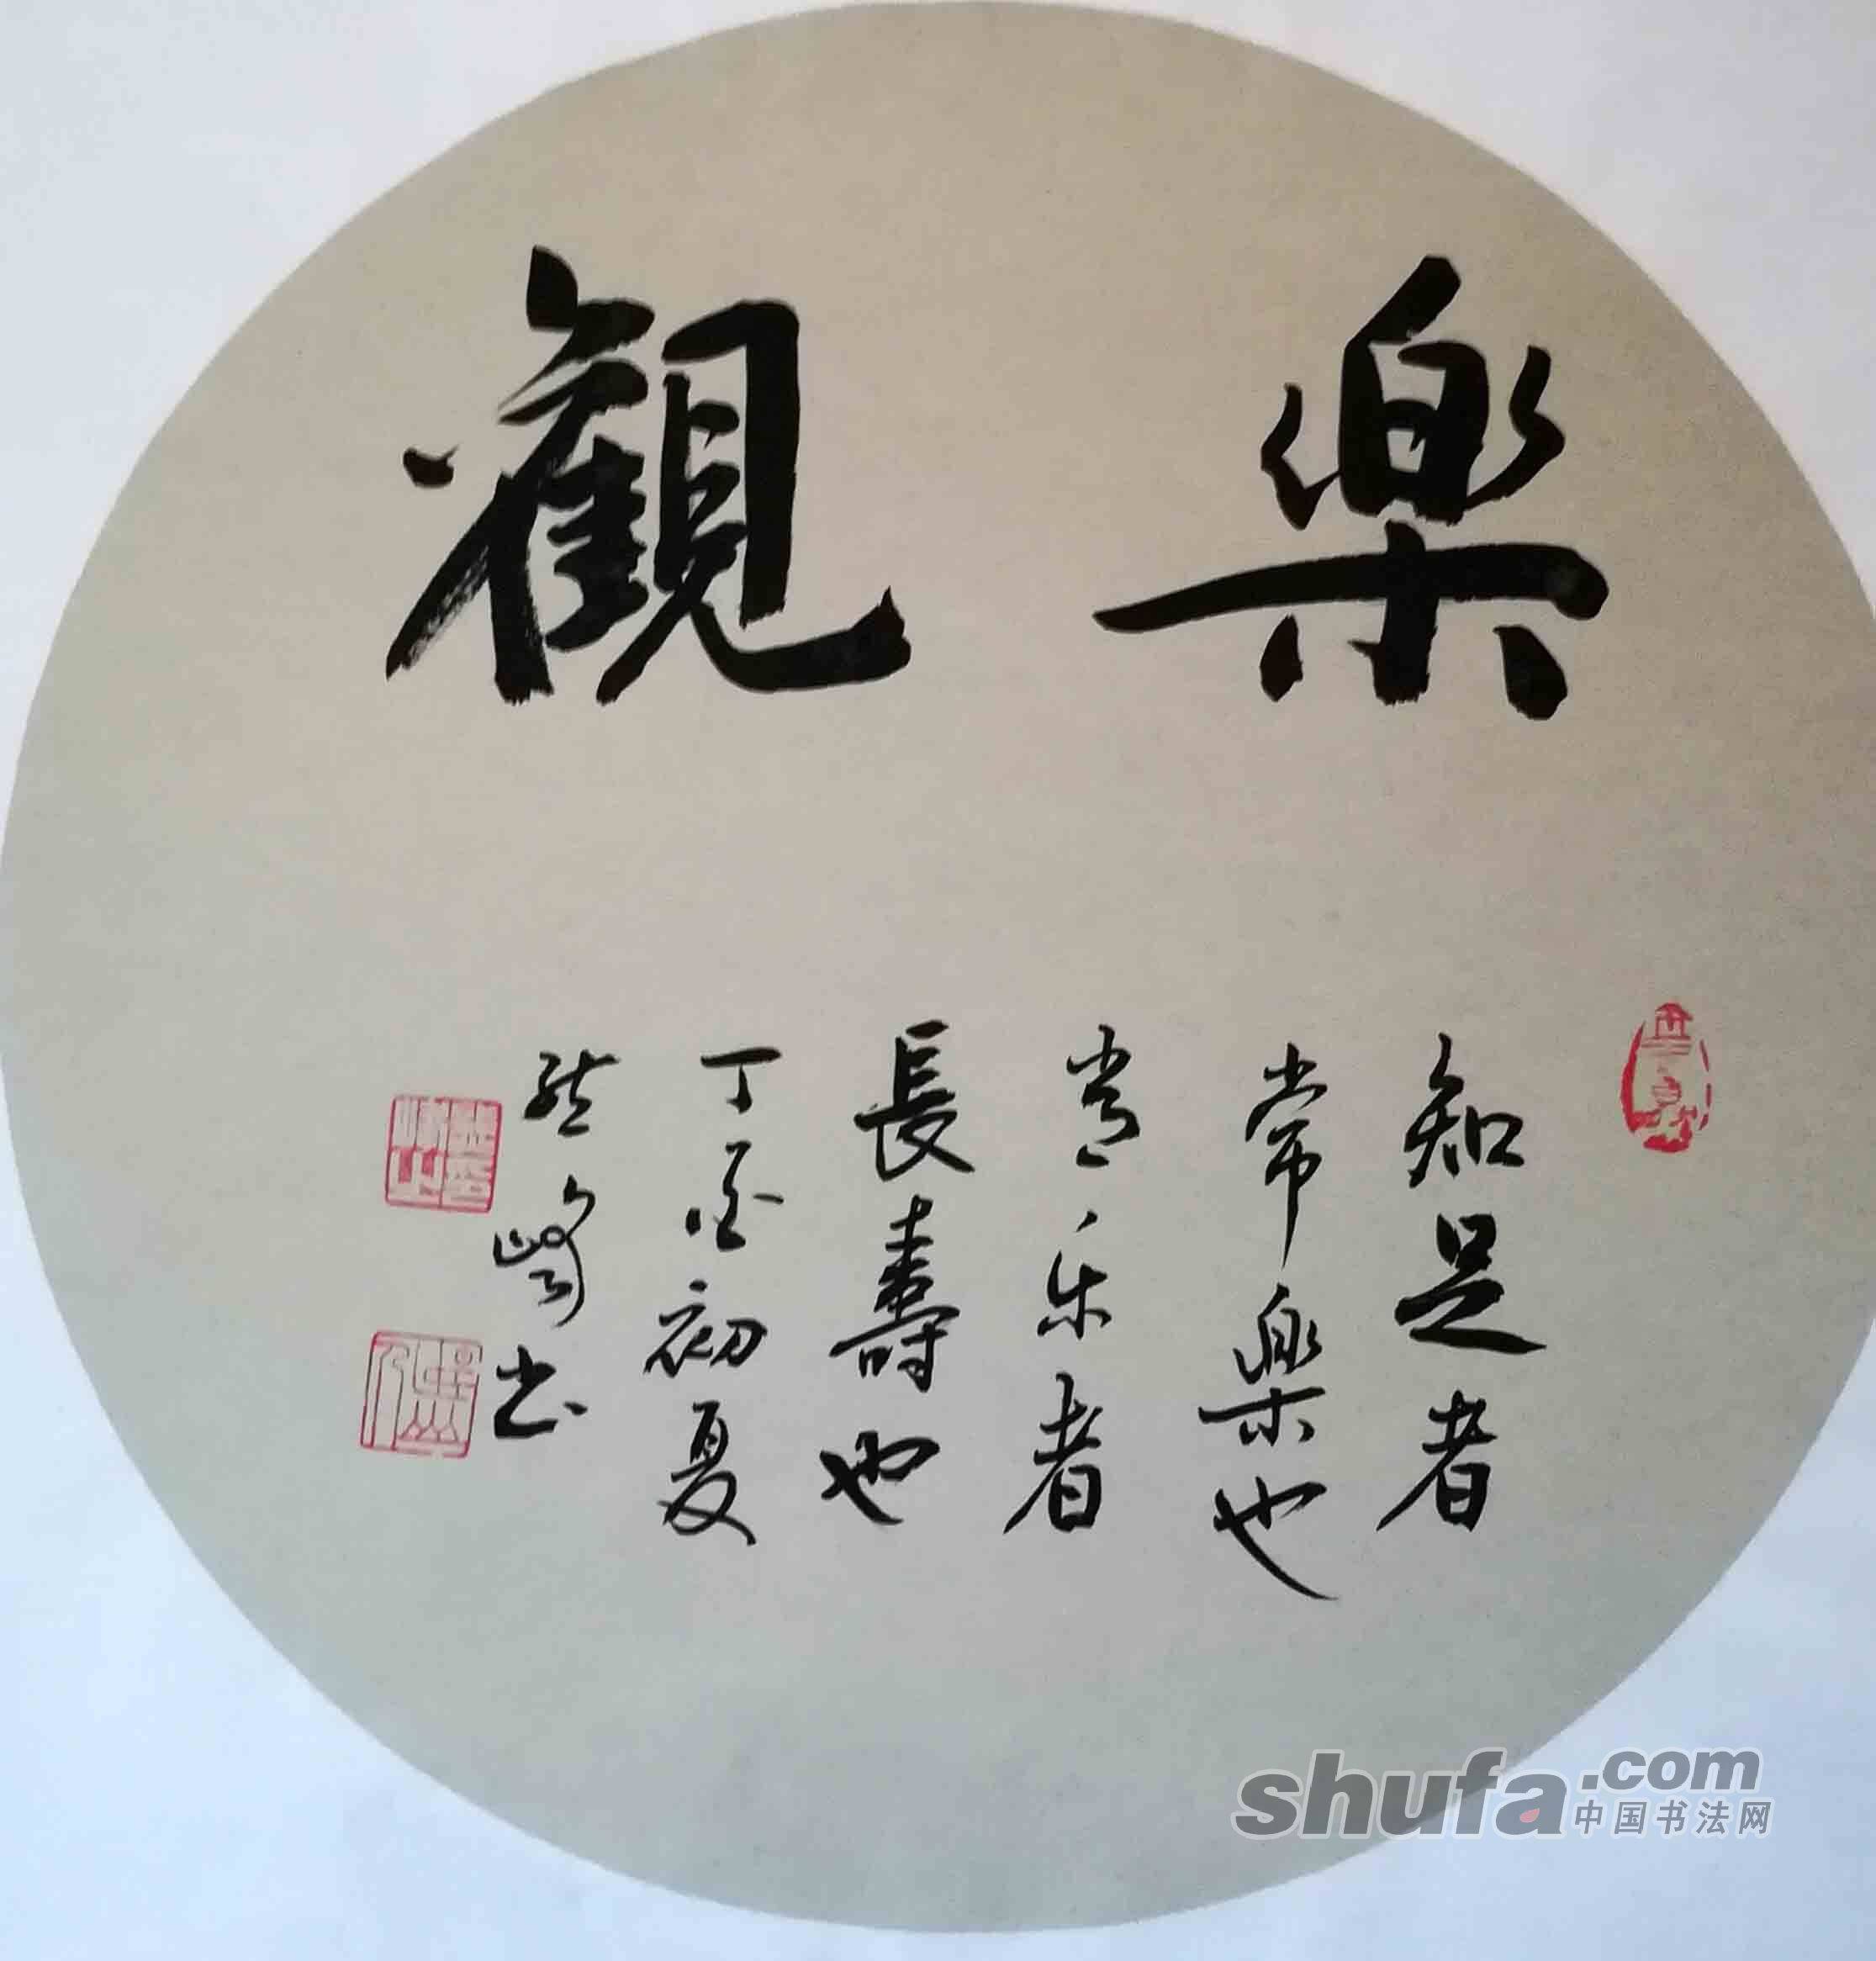 樂觀
知足者
常樂也
常乐者
長壽也
丁酉初夏
书
shufa.com
中国书法网